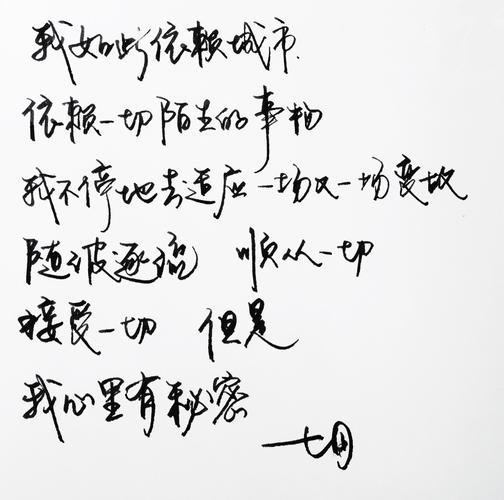 我如此依赖城市.
依赖一切陌生的事物
我不停地去适应一场又一场变故
随波逐流 顺从一切
接受一切 但是
我心里有秘密
七月